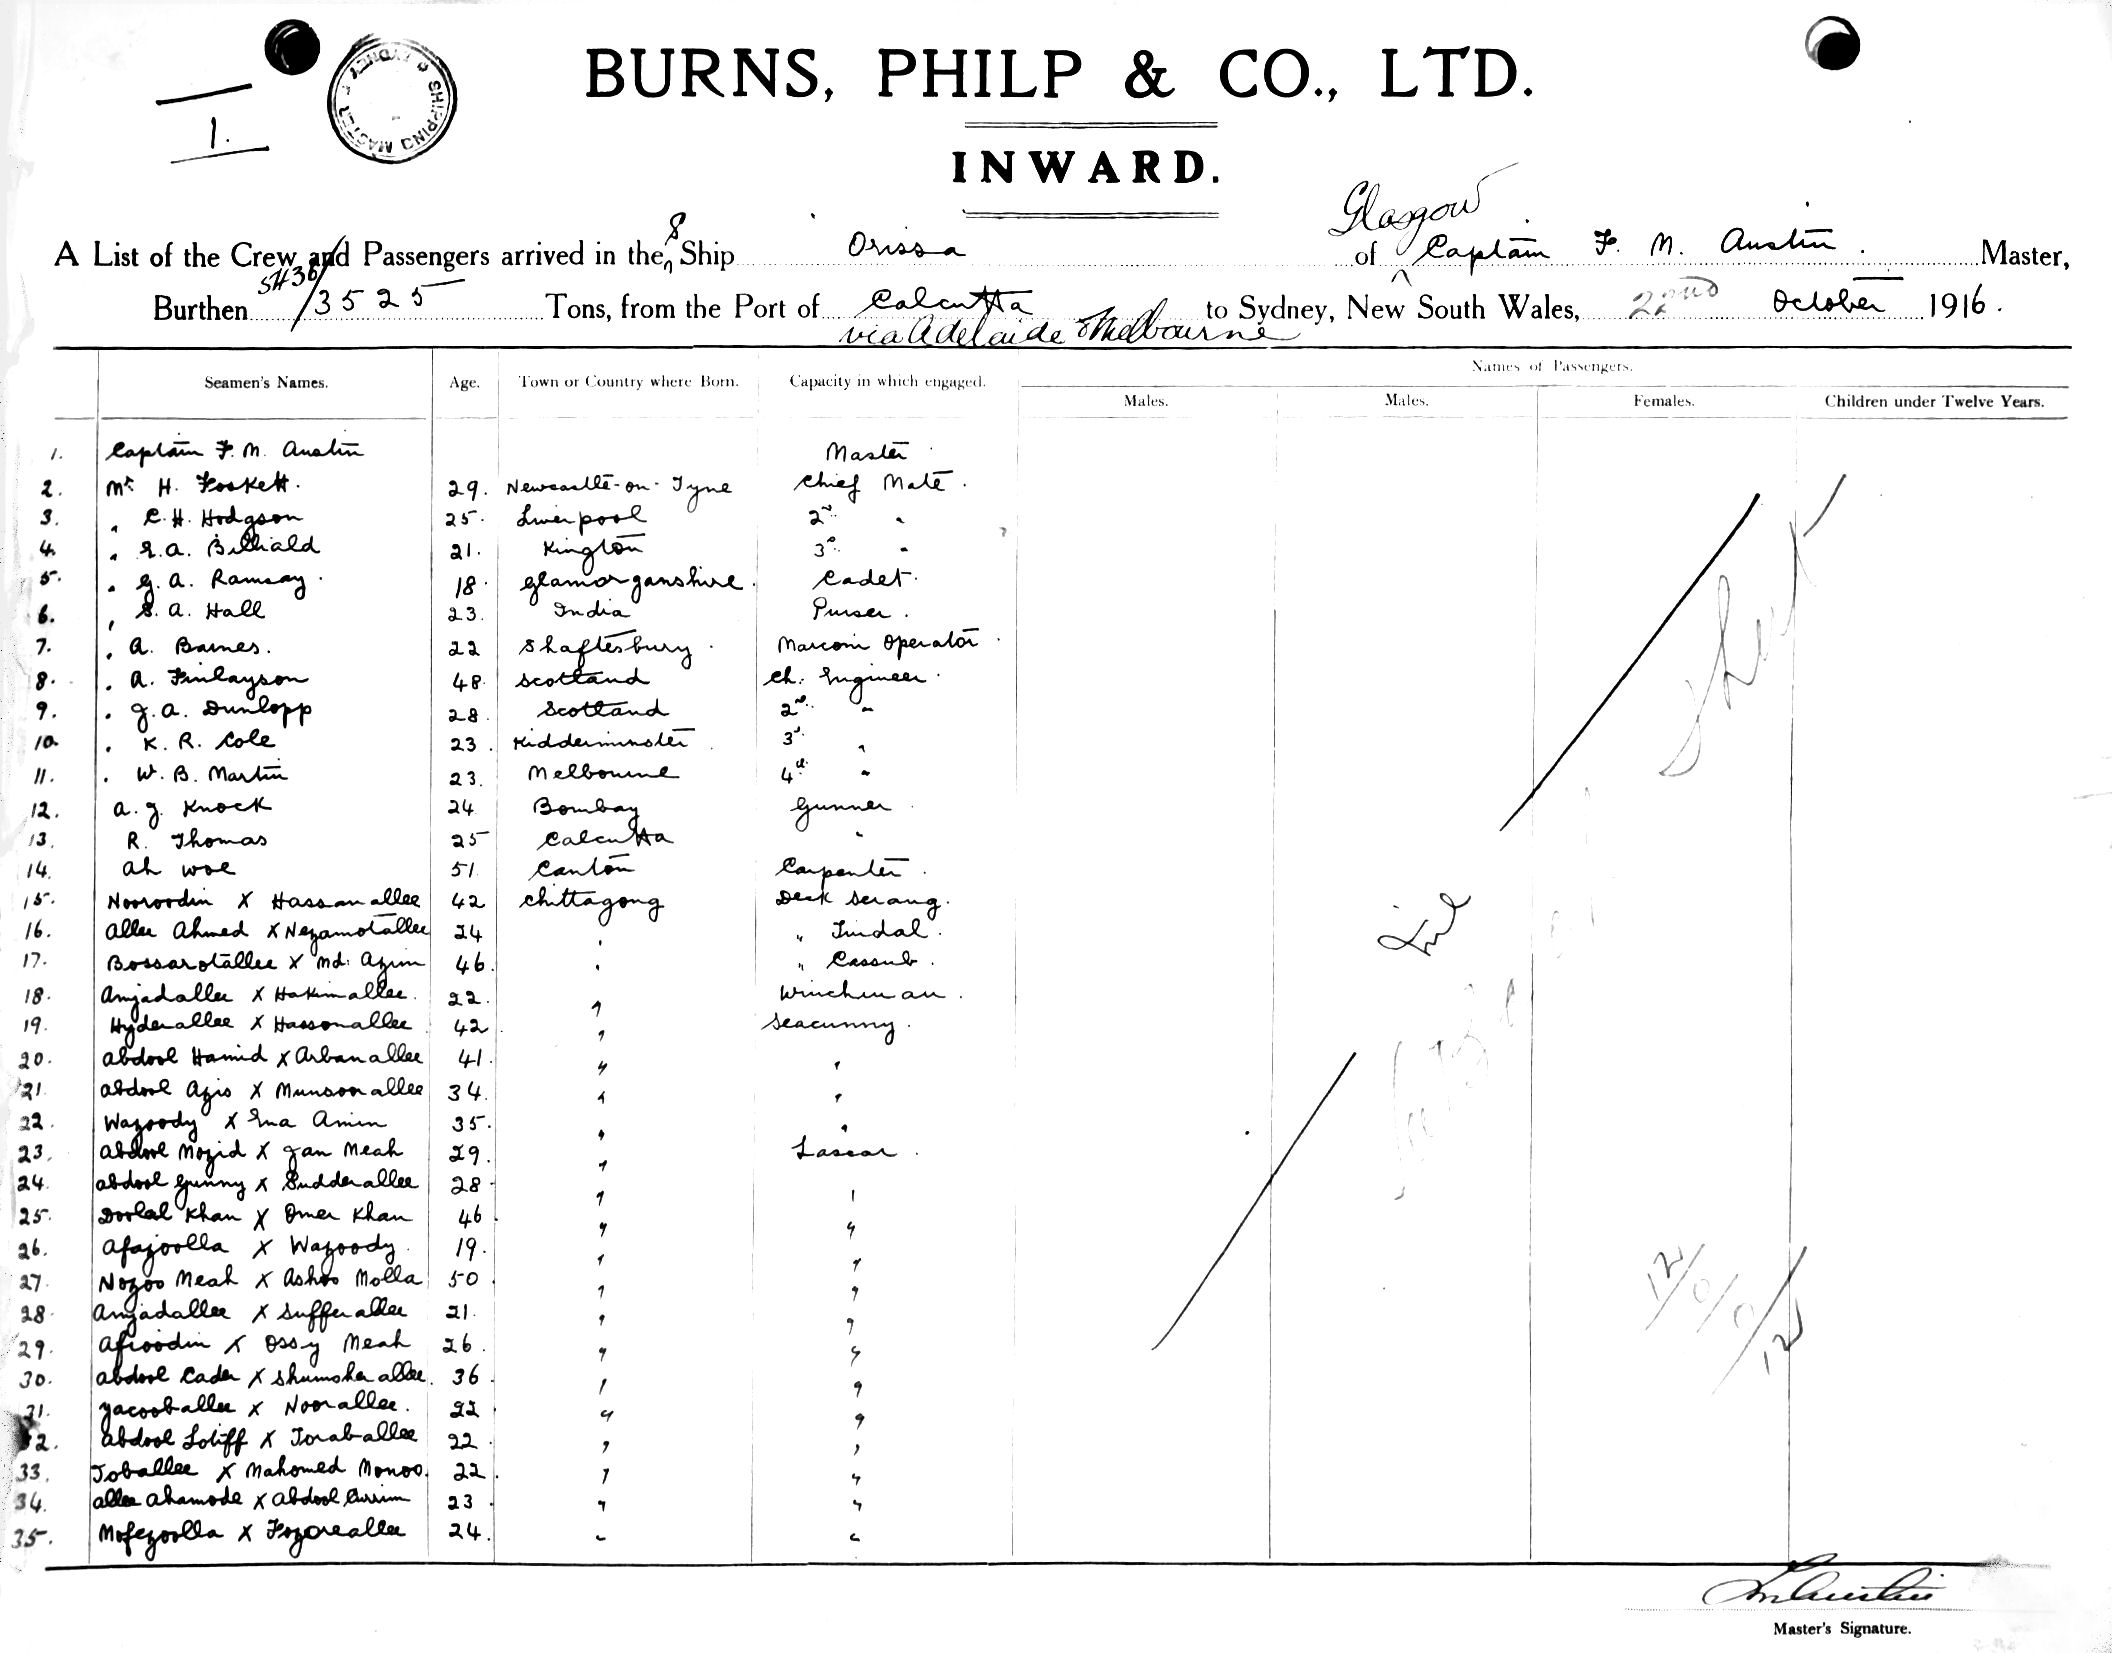 BURNS, PHILP & CO., LTD.
1.
SHIPPING MASTER SYDNEY
INWARD.
Glasgow
A List of the Crew and Passengers arrived in the S Ship Orissa of Captain F. M. Austin Master,
Burthen 5436/3525 Tons, from the Port of Calcutta to Sydney, New South Wales, 22nd October 1916.
via Adelaide & Melbourne
Names of Passengers.
Seamen's Names. Age. Town or Country where Born. Capacity in which engaged. Males. Males. Females. Children under Twelve Years.
1. Captain F. M. Austin Master
2. Mr H. Foskett. 29. Newcastle-on-Tyne Chief Mate.
3. " C. H. Hodgson 25. Liverpool 2nd "
4. " E. A. Billiald 21. Kington 3rd "
5. " G. A. Ramsay. 18. Glamorganshire. Cadet.
6. " S. A. Hall 23. India Purser.
7. " A. Barnes. 22 Shaftesbury. Marconi Operator
8. " A. Finlayson 48 Scotland Ch. Engineer.
9. " J. A. Dunlopp 28. Scotland 2nd "
10. " K. R. Cole 23. Kidderminster 3d "
11. " W. B. Martin 23. Melbourne 4th "
12. A. J. Knock 24 Bombay Gunner
13. R. Thomas 25 Calcutta "
14. Ah Woe 51. Canton Carpenter.
15. Nooroodin X Hassanallee 42 Chittagong Deck Serang.
16. Allee Ahmed X Nezamotallee 24 " " Tindal.
17. Bossarotallee X Md. Azim 46. " " Cassub.
18. Amjadallee X Hakimallee. 22. " Winchman.
19. Hyderallee X Hassonallee 42 " Seacunny.
20. Abdool Hamid X Arbanallee 41. " "
21. Abdool Azis X Munsoorallee 34. " "
22. Wazoody X Ena Amin 35. " "
23. Abdool Mozid X Jan Meah 29. " Lascar.
24. Abdool Gunny X Sudderallee 28. " "
25. Doolal Khan X Omer Khan 46 " "
26. Afazoolla X Wazoody. 19. " "
27. Nozoo Meah X Ashoo Molla 50. " "
28. Amjadallee X Sufferallee 21. " "
29. Afioodin X Ossy Meah 26. " "
30. Abdool Cader X Shumsherallee. 36. " "
31. Yacooballee X Noorallee. 22 " "
32. Abdool Lotiff X Toraballee 22. " "
33. Toballee X Mahomed Monoo. 22. " "
34. Allee Ahamode X Abdool Currim 23. " "
35. Mofezoolla X Fozoreallee 24. " "
Nil
12/0/0/12
F M Austin
Master's Signature.